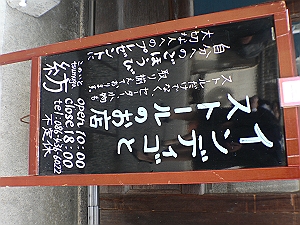 インディゴと
ストールのお店
ストールだけでなく、セーターや小物も
取り揃えております
自分へのごほうび
大切な人へのプレゼントに
紡
tsumugu
open 10:00
close 18:00
不定休